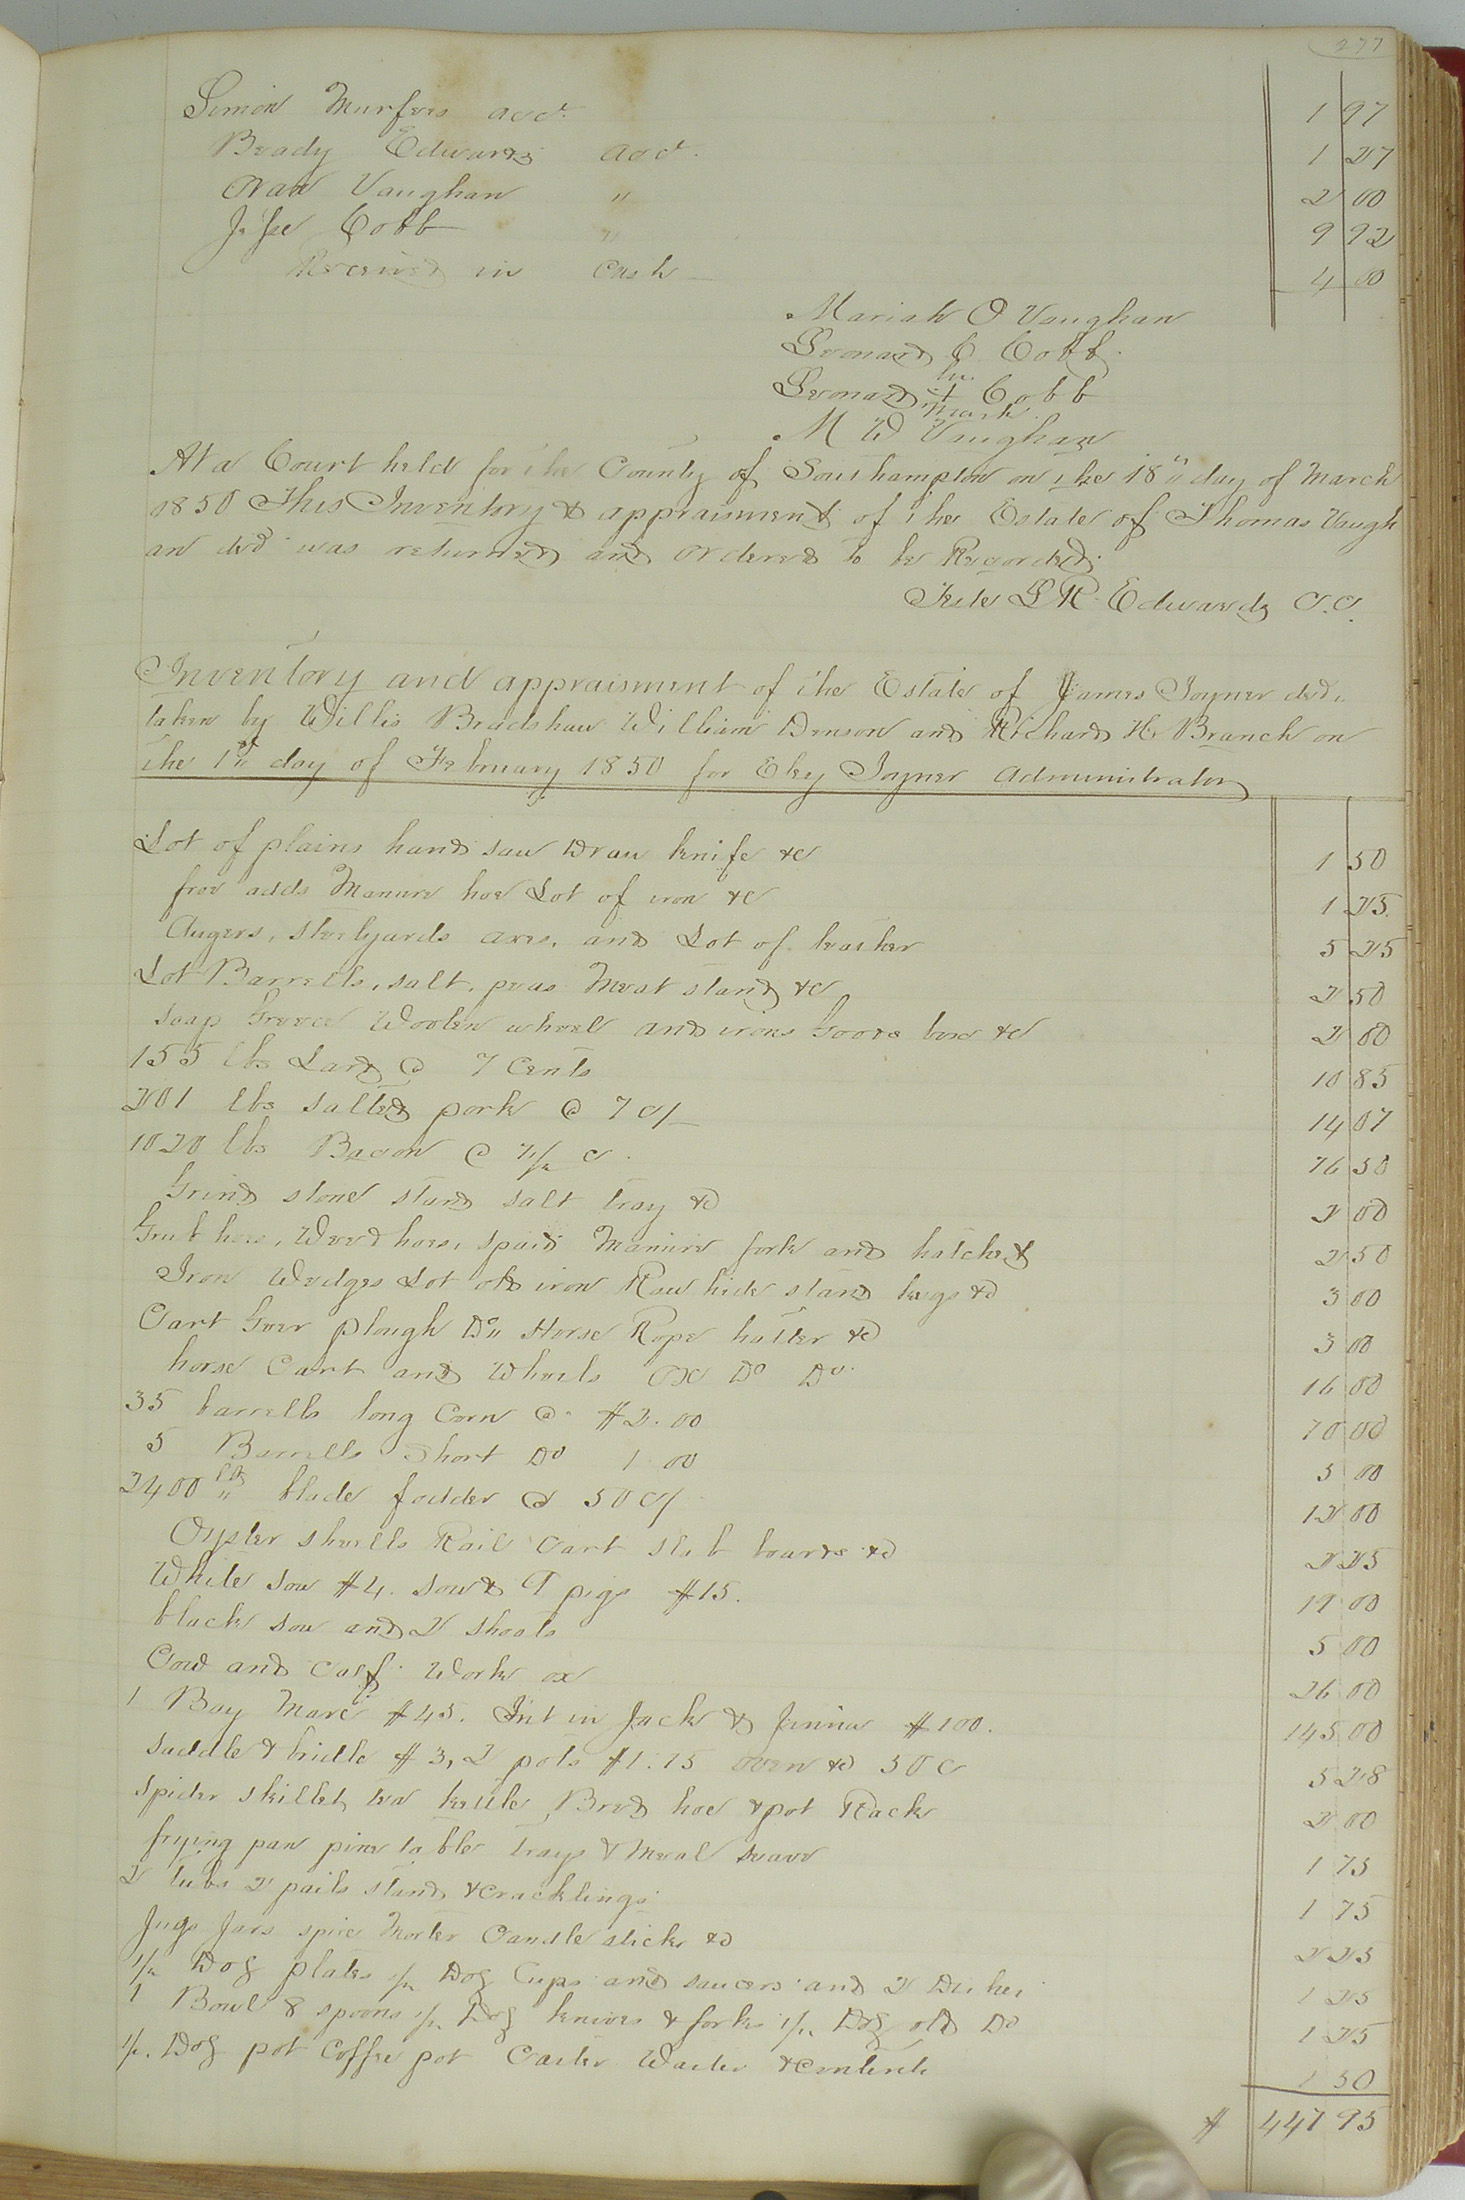 277
Simon Murfees acct. 1 97
Beady Edwards acct. 1 27
Nat Vaughan " 2 00
Jesse Cobb " 9 92
Received in Cash 4 00
Mariah O Vaughan
Leonard C Cobb
his
Leonard + Cobb
mark
M W Vaughan
At a Court held for the County of Southampton on the 18" day of March
1850 This Inventory & appraisment of the Estate of Thomas Vaugh
an decd was returned and ordered to be Recorded.
Teste L R Edwards C.C.
Inventory and appraisment of the Estate of James Joyner decd.
taken by Willis Bradshaw William Denson and Richard H. Branch on
the 1st day of February 1850 for Eley Joyner Administrator
Lot of plains hand saw Draw knife &c 1 50
froe adds Manure hoe Lot of iron &c 1 25
Augers, steelyards axes, and Lot of leather 5 25
Lot Barrells, salt, peas Meat stand &c 2 50
soap Greece Woolen wheel and irons Goods box &c 2 00
155 lbs Lard @ 7 Cents 10 85
201 lbs salted pork @ 7 c/ 14 07
1020 lbs Bacon @ 7 1/2 c 76 50
Grind stone stand salt tray &c 2 00
Grub hoes, Weed hoes, spaid Manure fork and hatchet 2 50
Iron Wedges Lot old iron Raw hide stand kegs &c 3 00
Cart Gear plough Do" Horse Rope halter &c 3 00
horse Cart and Wheels Ox Do Do 16 00
35 barrells long Corn @ $2.00 70 00
5 Barrells Short Do 1 00 5 00
2400 lbs blade fodder @ 50 c/ 12 00
Oyster shells Rail Cart slab boards &c 2 25
White sow $4. sow & 9 pigs $15. 19 00
black sow and 2 shoats 5 00
Cow and Calf Work ox 26 00
1 Bay Mare $45. Int in Jack & Jinnia $100. 145 00
saddle & bridle $3, 2 pots $1.15 oven &c 50 c 5 28
spider skillet, tea kettle Bred hoe & pot Rack 2 00
frying pan pine table trays & Meal seave 1 75
2 tubs 2 pails stand & cracklings 1 75
Jugs Jars spice Morter Candle sticks &c 2 25
1/2 Doz plates 1/2 Doz Cups and saucers and 2 Dishes 1 25
1 Bowl 8 spoons 1/2 Doz knives & forks 1/2 Doz old Do 1 25
1/2 Doz pot Coffee pot Caster Waiter & contents 1 50
$ 447 95